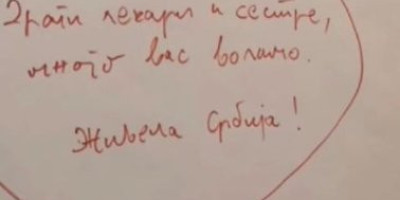 Драги лекари и сестре,
много вас волимо.
Живела Србија!